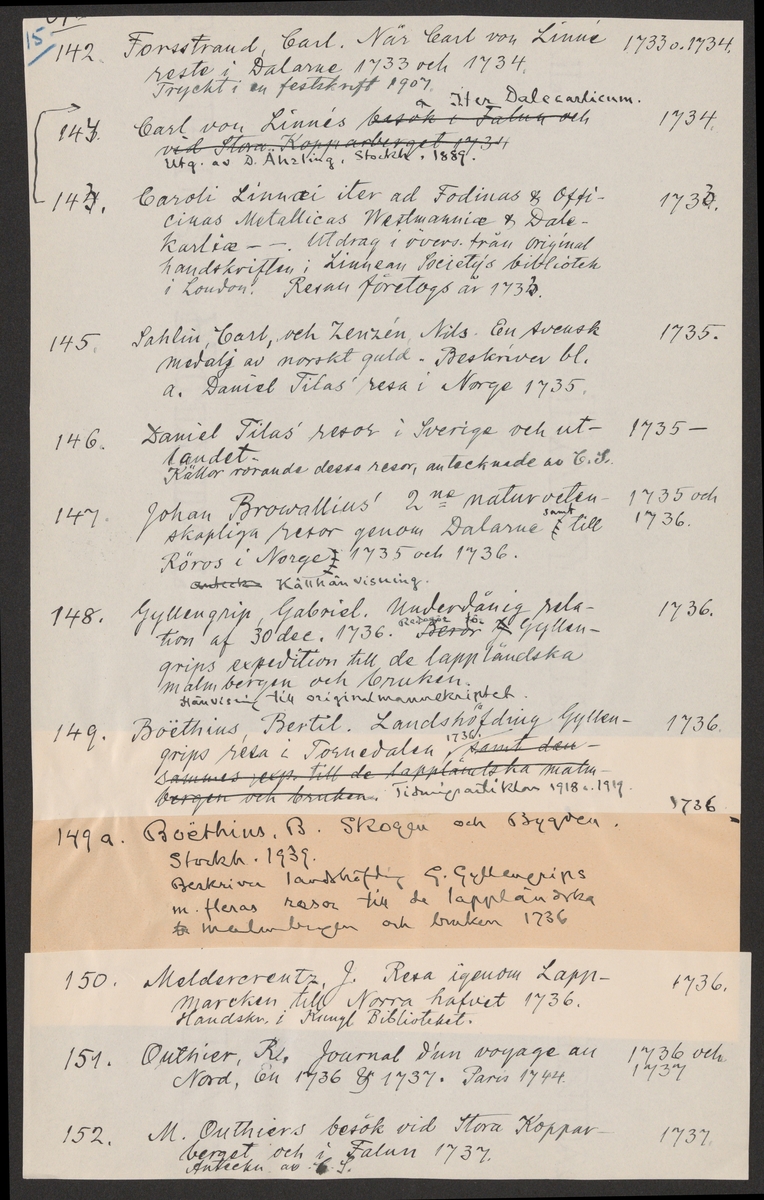 15
142. Forsstrand, Carl. När Carl von Linné 1733 o. 1734.
reste i Dalarne 1733 och 1734.
Tryckt i en festskrift 1907.
Iter Dalecarlicum.
Carl von Linnés besök i Falun och 1734.
vid Stora Kopparberget 1734
Utg. av D. Ährling, Stockh. 1889.
Caroli Linnæi iter ad Fodinas & Offi-
cinas Metallicas Westmanniæ & Dale-
karliæ — —. Utdrag i övers. från original
handskriften i Linnean Society's bibliotek
i London. Resan företogs år 1733.
145. Sahlin, Carl, och Zenzén, Nils. En svensk 1735.
medalj av norskt guld. Beskriver bl.
a. Daniel Tilas' resa i Norge 1735.
146. Daniel Tilas' resor i Sverige och ut- 1735 —
landet.
Källor rörande dessa resor, antecknade av C. S.
147. Johan Browallius' 2ne naturveten- 1735 och
skapliga resor genom Dalarne samt till 1736.
Röros i Norge 1735 och 1736.
Källhänvisning.
148. Gyllengrip, Gabriel. Underdånig rela- 1736.
tion af 30 dec. 1736. Redogör för Gyllen-
grips expedition till de lappländska
malmbergen och bruken.
Hänvisning till originalmanuskriptet.
149. Boëthius, Bertil. Landshöfding Gyllen- 1736.
grips resa i Tornedalen 1736, samt den-
sammes exp. till de lappländska malm-
bergen och bruken. Tidningsartiklar 1918 o. 1919.
1736
149 a. Boëthius, B. Skogen och Bygden.
Stockh. 1939.
Beskriver landshöfding G. Gyllengrips
m. fleras resor till de lappländska
malmbergen och bruken 1736
150. Meldercreutz, J. Resa igenom Lapp- 1736.
marcken till Norra hafvet 1736.
Handskr. i Kungl Biblioteket.
151. Outhier, R. Journal d'un voyage au 1736 och
Nord, En 1736 & 1737. Paris 1744. 1737
152. M. Outhiers besök vid Stora Koppar- 1737.
berget och i Falun 1737.
Anteckn. av C. S.